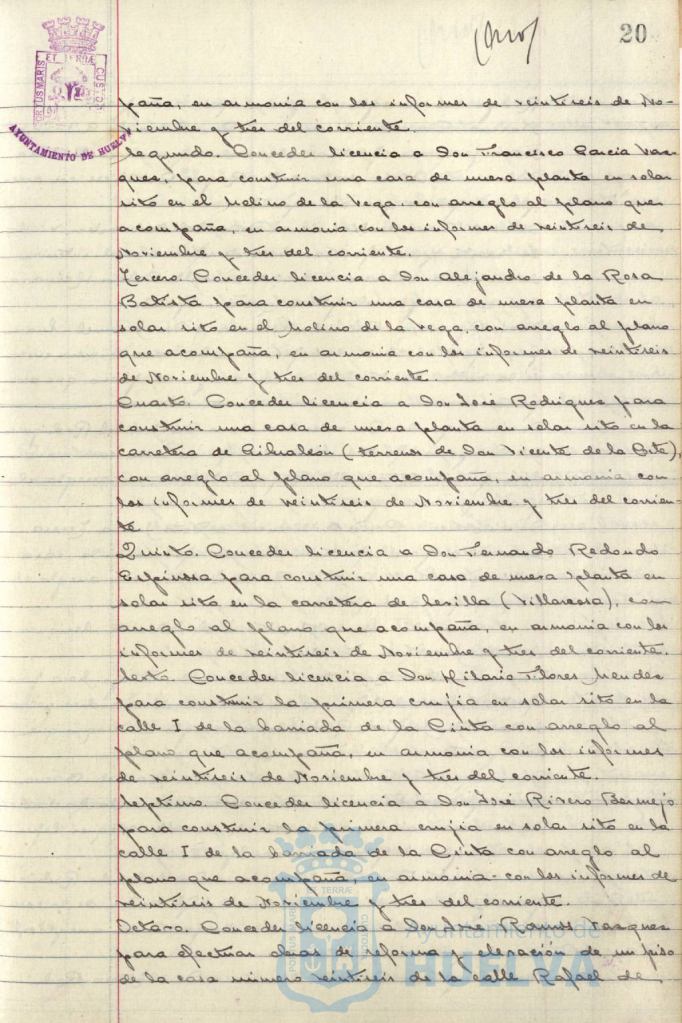 20
PORTUS MARIS ET TERRÆ CUSTODIA
AYUNTAMIENTO DE HUELVA
paña, en armonia con los informes de veintiseis de No-
viembre y tres del corriente.
Segundo. Conceder licencia a Don Francisco Garcia Vaz-
ques, para construir una casa de nueva planta en solar
sito en el Molino de la Vega, con arreglo al plano que
acompaña, en armonia con los informes de veintiseis de
Noviembre y tres del corriente.
Tercero. Conceder licencia a Don Alejandro de la Rosa
Batista para construir una casa de nueva planta en
solar sito en el Molino de la Vega, con arreglo al plano
que acompaña, en armonia con los informes de veintiseis
de Noviembre y tres del corriente.
Cuarto. Conceder licencia a Don José Rodriguez para
construir una casa de nueva planta en solar sito en la
carretera de Gibraleón (terrenos de Don Vicente de la
con arreglo al plano que acompaña, en armonia con
los informes de veintiseis de Noviembre y tres del corrien-
te.
Quinto. Conceder licencia a Don Fernando Redondo
Espinosa para construir una casa de nueva planta en
solar sito en la carretera de Sevilla (Villarrosa), con
arreglo al plano que acompaña, en armonia con los
informes de veintiseis de Noviembre y tres del corriente.
Sexto. Conceder licencia a Don Hilario Flores Mendez
para construir la primera crujia en solar sito en la
calle I de la barriada de la Cinta con arreglo al
plano que acompaña, en armonia con los informes
de veintiseis de Noviembre y tres del corriente.
Septimo. Conceder licencia a Don José Rivero Bermejo
para construir la primera crujia en solar sito en la
calle I de la barriada de la Cinta con arreglo al
plano que acompaña, en armonia con los informes de
veintiseis de Noviembre y tres del corriente.
Octavo. Conceder licencia a Don José Ramos Vazquez
para efectuar obras de reforma y elevación de un piso
de la casa número veintiseis de la calle Rafael de
Ayuntamiento de
HUELVA